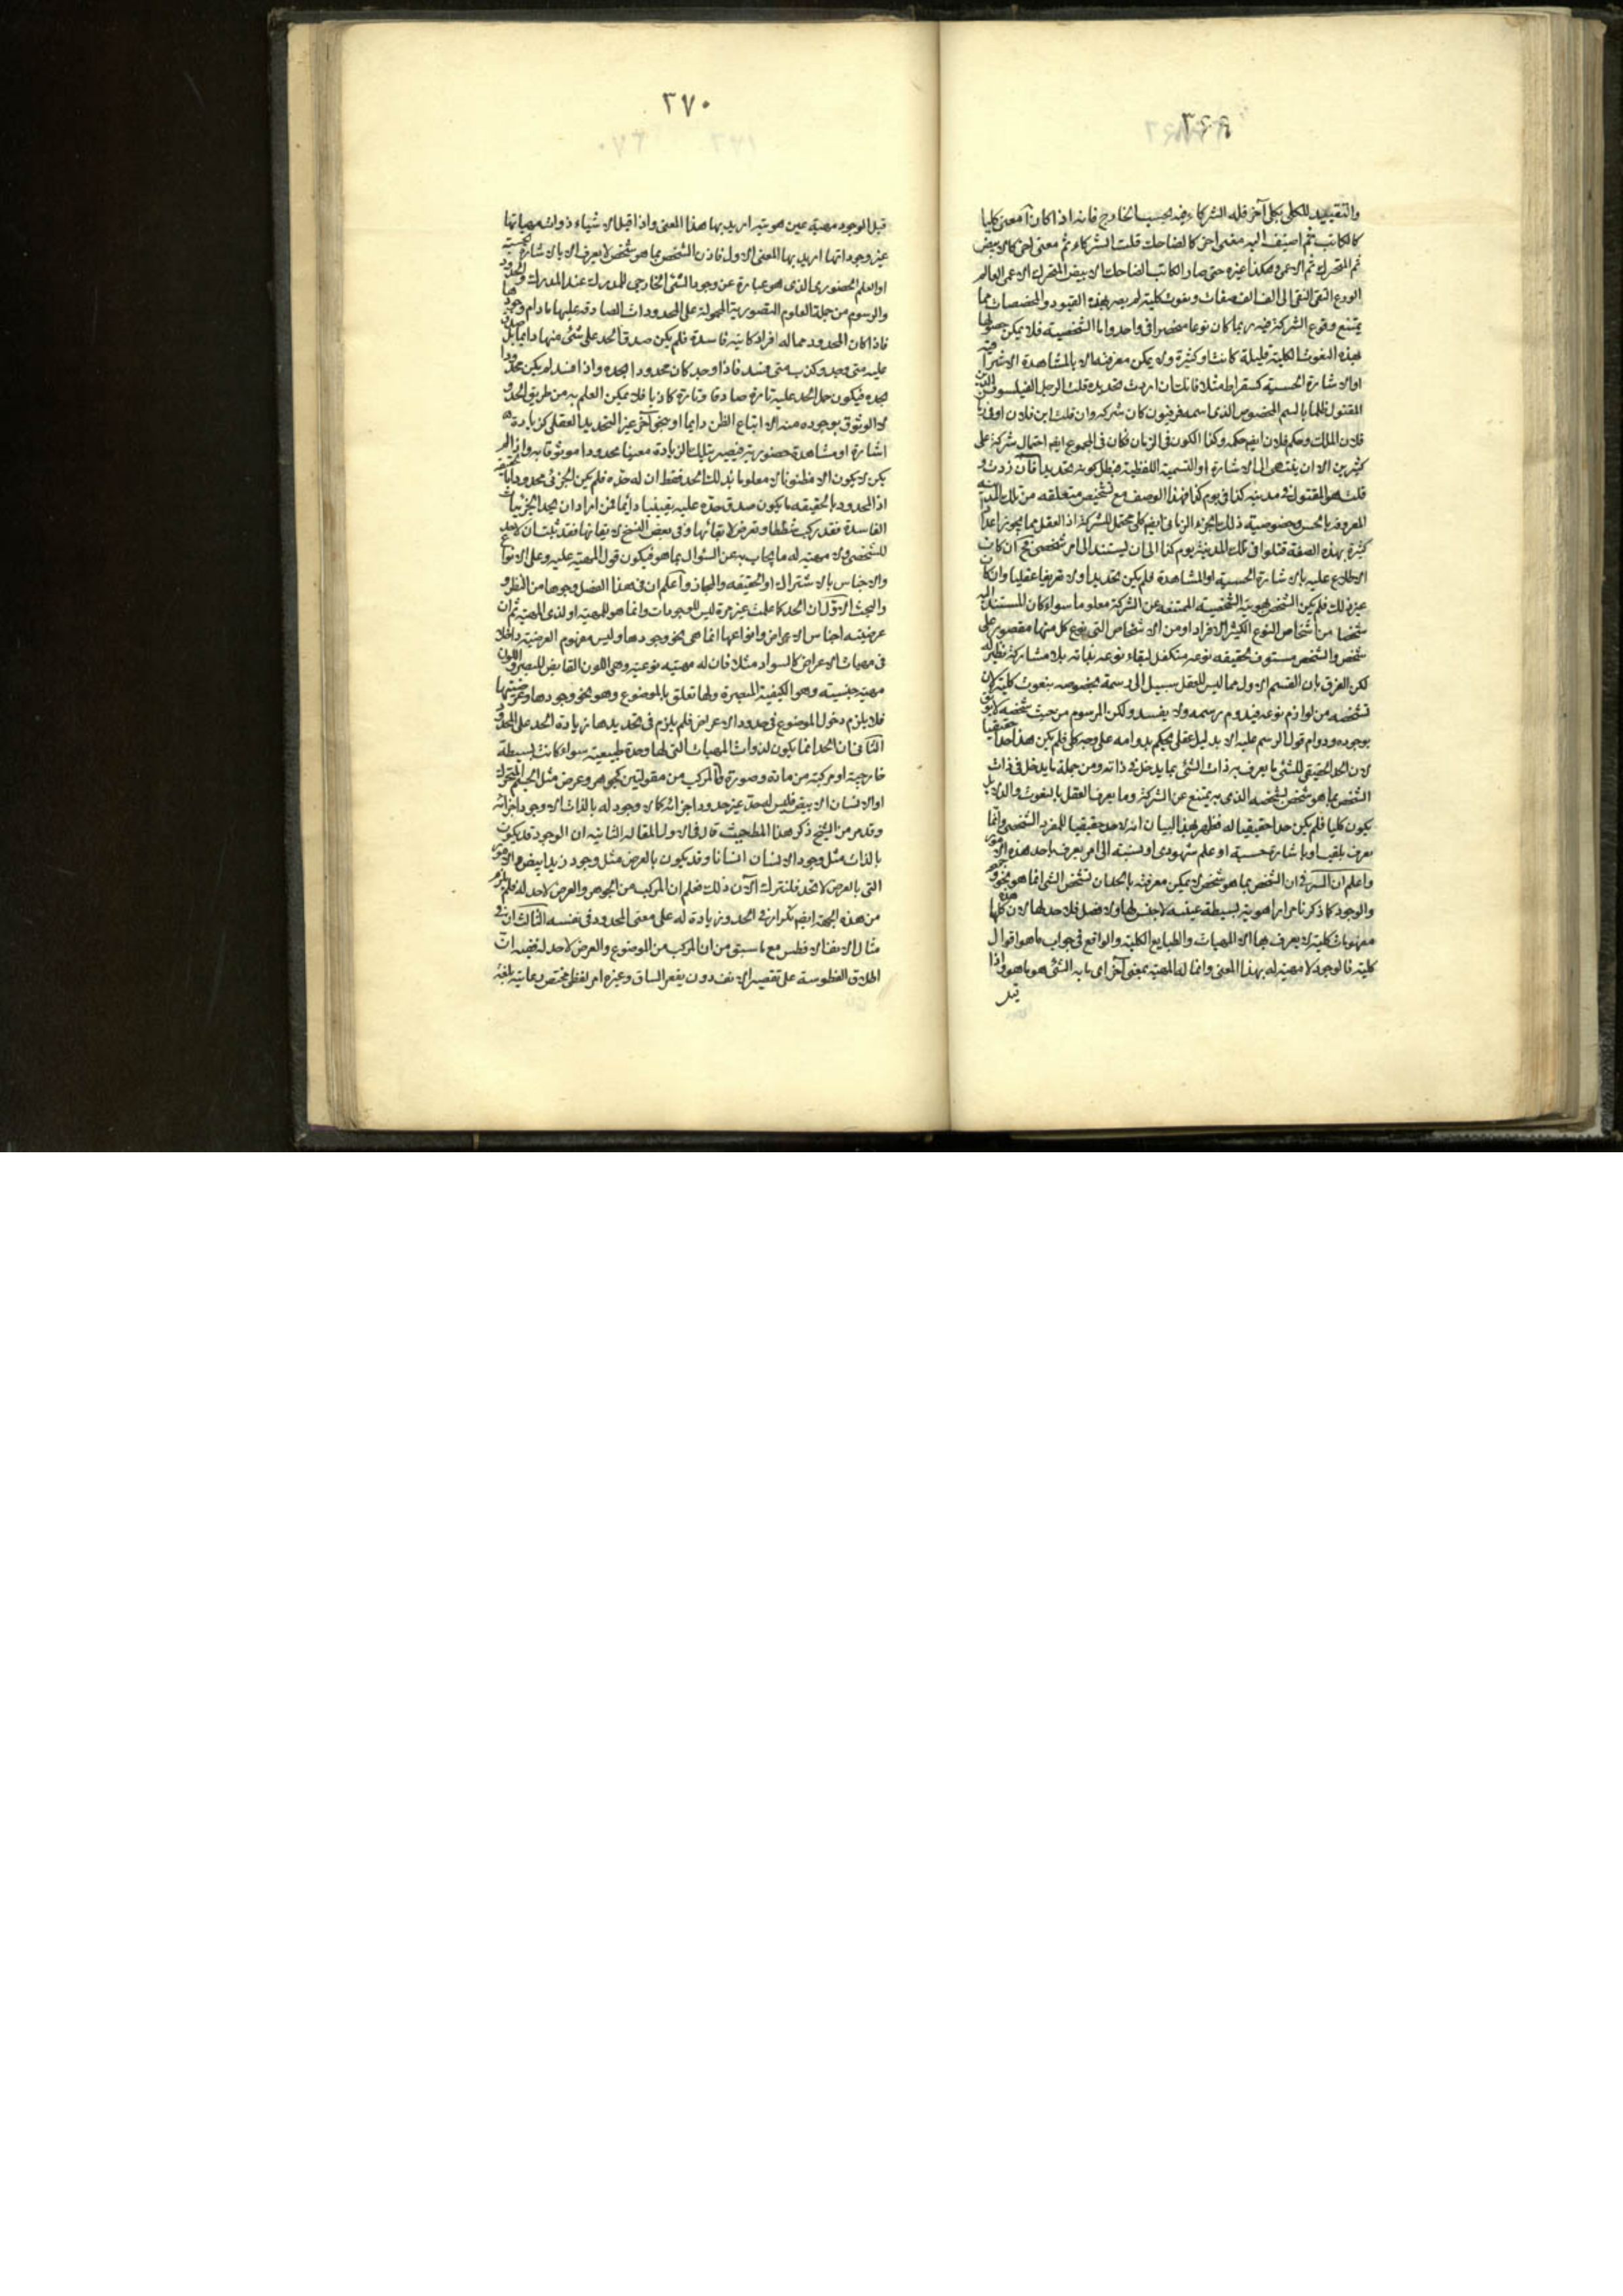 ٣٦٩
والتقييد للكلى بكلى آخر قله الشركاء فيه بحسب الخارج فانه اذا كان آ معنى كليا
كالكاتب ثم اضيف اليه معنى اخر كالضاحك قلت الشركاء ثم معنى اخر كالابيض
ثم المتحرك ثم الاعمى وهكذا غيره حتى صار الكاتب الضاحك الابيض المتحرك الاعمى العالم
الورع التقى النقى الى الف الف صفات ونعوت كلية لم يصر بهذه القيود والمخصصات مما
يمتنع وقوع الشركة فيه ربما كان نوعا منحصرا فى واحد واما الشخصية فلا يمكن حصولها
بهذه النعوت الكلية قليلة كانت او كثيرة ولا يمكن معرفته الا بالمشاهدة الاشراقية
او الاشارة الحسية كسقراط مثلا فانك ان اردت تحديده قلت الرجل الفيلسوف الدين
المقتول ظلما بالسم المخصوص الذى اسمه فرفيون كان شركه وان قلت ابن فلان او فى زمان
فلان الملك وحكم فلان ايضم حكمه وكذا الكون فى الزمان فكان فى المجموع ايضم احتمال شركة على
كثيرين الا ان ينتهى الى الاشارة او التسمية اللفظية فبطل كونه تحديدا فان زدت و
قلت هو المقتول فى مدينه كذا فى يوم كذا فهذا الوصف مع تشخيص متعلقه من تلك المدينة
المعروفه بالحس وخصوصية ذلك الجزء الزمانى ايضم كلى محتمل للشركة اذ العقل مما يجوز اعدادا
كثيرة بهذه الصفة قتلوا فى تلك المدينة يوم كذا الى ان يستند الى امر شخصى فح ان كان
الاطلاع عليه بالاشارة الحسية او المشاهدة فلم يكن تحديدا ولا تعريفا عقليا وان كان
غير ذلك فلم يكن الشخص بهويته الشخصية الممتنعه عن الشركة معلوما سواء كان المستند اليه
شخصا من اشخاص النوع الكثير الافراد او من الاشخاص التى نوع كل منها مقصور على
شخص والشخص مستوف لحقيقه نوعه متكفل لبقاء نوعه بذاته بلا مشاركة نظير له
لكن الفرق بان القسم الاول مما ليس للعقل سبيل الى رسمه بخصوصه بنعوت كلية لان
تشخصه من لوازم نوعه فيدوم رسمه ولا يفسد ولكن المرسوم من حيث شخصه لا يوثق
بوجوده ودوام قول الرسم عليه الا بدليل عقلى يحكم بدوامه على وجه كلى فلم يكن هذا حدا حقيقيا
لان الحد الحقيقى للشئ ما يعرف به ذات الشئ بما يدخل فى ذاته ومن جملة ما يدخل فى ذات
الشخص بما هو شخص تشخصه الذى به يمتنع عن الشركة وما يعرف العقل بالنعوت والدلايل
يكون كليا فلم يكن حدا حقيقيا له فظهر بهذا البيان انه لا حد حقيقيا للمفرد الشخصى وانما
يعرف بلقب او باشارة حسية او علم شهودى او بنسبته الى امر يعرف باحد هذه الامور
واعلم ان السر فى ان الشخص بما هو شخص لا يمكن معرفته بالحد ان تشخص الشئ انما هو بنحو وجوده
والوجود كما ذكرنا مرارا هوية بسيطة عينيه لا جنس لها ولا فصل فلا حد لها لان هذه كلها
مفهومات كلية لا يعرف بها الا المهيات والطبايع الكلية والواقع فى جواب ما هو اقوال
كلية فالوجود لا مهية له بهذا المعنى وانما له المهية بمعنى آخر اى ما به الشئ هو ما هو واذا
قيل
٣٧٠
قيل الوجود مهيته عين هويته اريد بها هذا المعنى واذا قيل الاشياء ذوات مهياتها
غير وجوداتها اريد بها المعنى الاول فاذن الشخص بما هو شخص لا يعرف الا بالاشارة الحسية
او العلم الحضورى الذى هو عبارة عن وجود الشئ الخارجى للمدرك عند المدرك والحدود
والرسوم من جملة العلوم التصورية المحمولة على المحدودات الصادقه عليها مادام وجودها
فاذا كان المحدود مما له افراد كائنه فاسدة فلم يكن صدق الحد على شئ منها دايما بل صدق
عليه متى وجد وكذب متى فسد فاذا وجد كان محدودا بحده واذا فسد لم يكن محدودا
بحده فيكون حمل الحد عليه تارة صادقا وتارة كاذبا فلا يمكن العلم به من طريق الحد و
لا الوثوق بوجوده منه الا اتباع الظن دايما او بنحو آخر غير التحديد العقلى كزيادة
اشارة او مشاهدة حضورية فيصير بتلك الزيادة معينا محدودا موثوقا به واذا لم
يكن لا يكون الا مظنونا لا معلوما بذلك الحد فقط ان له حده فلم يكن الجزئى محدودا بالحقيقه
اذ المحدود بالحقيقه ما يكون صدق حده عليه يقينيا دايما فمن اراد ان يحد الجزئيات
الفاسدة فقد ركب شططا وتعرض لابقائها وفى بعض النسخ لا يفائها فقد ثبت ان لا حد
للشخصى ولا مهية له ما يجاب به عن السئوال بما هو فيكون قول المهية عليه وعلى الانواع
والاجناس بالاشتراك او الحقيقه والمجاز واعلم ان فى هذا الفصل وجوها من النظر و
والبحث الاول ان الحد كما علمت غير مرة ليس للوجودات وانما هو للمهية او لذى المهية ثم ان
عرضيته اجناس الاعراض وانواعها انما هى بنحو وجودها وليس مفهوم العرضية داخلا
فى مهيات الاعراض كالسواد مثلا فان له مهية نوعيه وهى اللون القابض للبصر واللون
مهية جنسيه وهو الكيفية المبصرة ولها تعلق بالموضوع وهو بنحو وجودها وعرضيتها
فلا يلزم دخول الموضوع فى حدود الاعراض فلم يلزم فى تحديدها زيادة الحد على المحدود
الثانى ان الحد انما يكون لذوات المهيات التى لها وحدة طبيعيه سواء كانت بسيطة
خارجية او مركبة من مادة وصورة فالمركب من مقولتين كجوهر وعرض مثل الجسم المتحرك
او الانسان الابيض فليس له حق غير حدود اجزائه كما لا وجود له بالذات الا وجود اجزائه
وقد مر من الشيخ ذكر هذا المطلب حيث قال فى الاولى المقالة الثانيه ان الوجود قد يكون
بالذات مثل وجود الانسان انسانا وقد يكون بالعرض مثل وجود زيد ابيض والامور
التى بالعرض لا تحد فلنترك الآن ذلك فعلم ان المركب من الجوهر والعرض لا حد له فلم يلزم
من هذه الجهة ايضم تكرار فى الحد وزيادة له على معنى المحدود فى نفسه الثالث ان فى
مثال الانف الافطس مع ما سبق من ان المركب من الموضوع والعرض لا حد له فيه ان
اطلاق الفطوسة على تقعير الانف دون تقعر الساق وغيره امر لفظى مختص رعايته بلغة